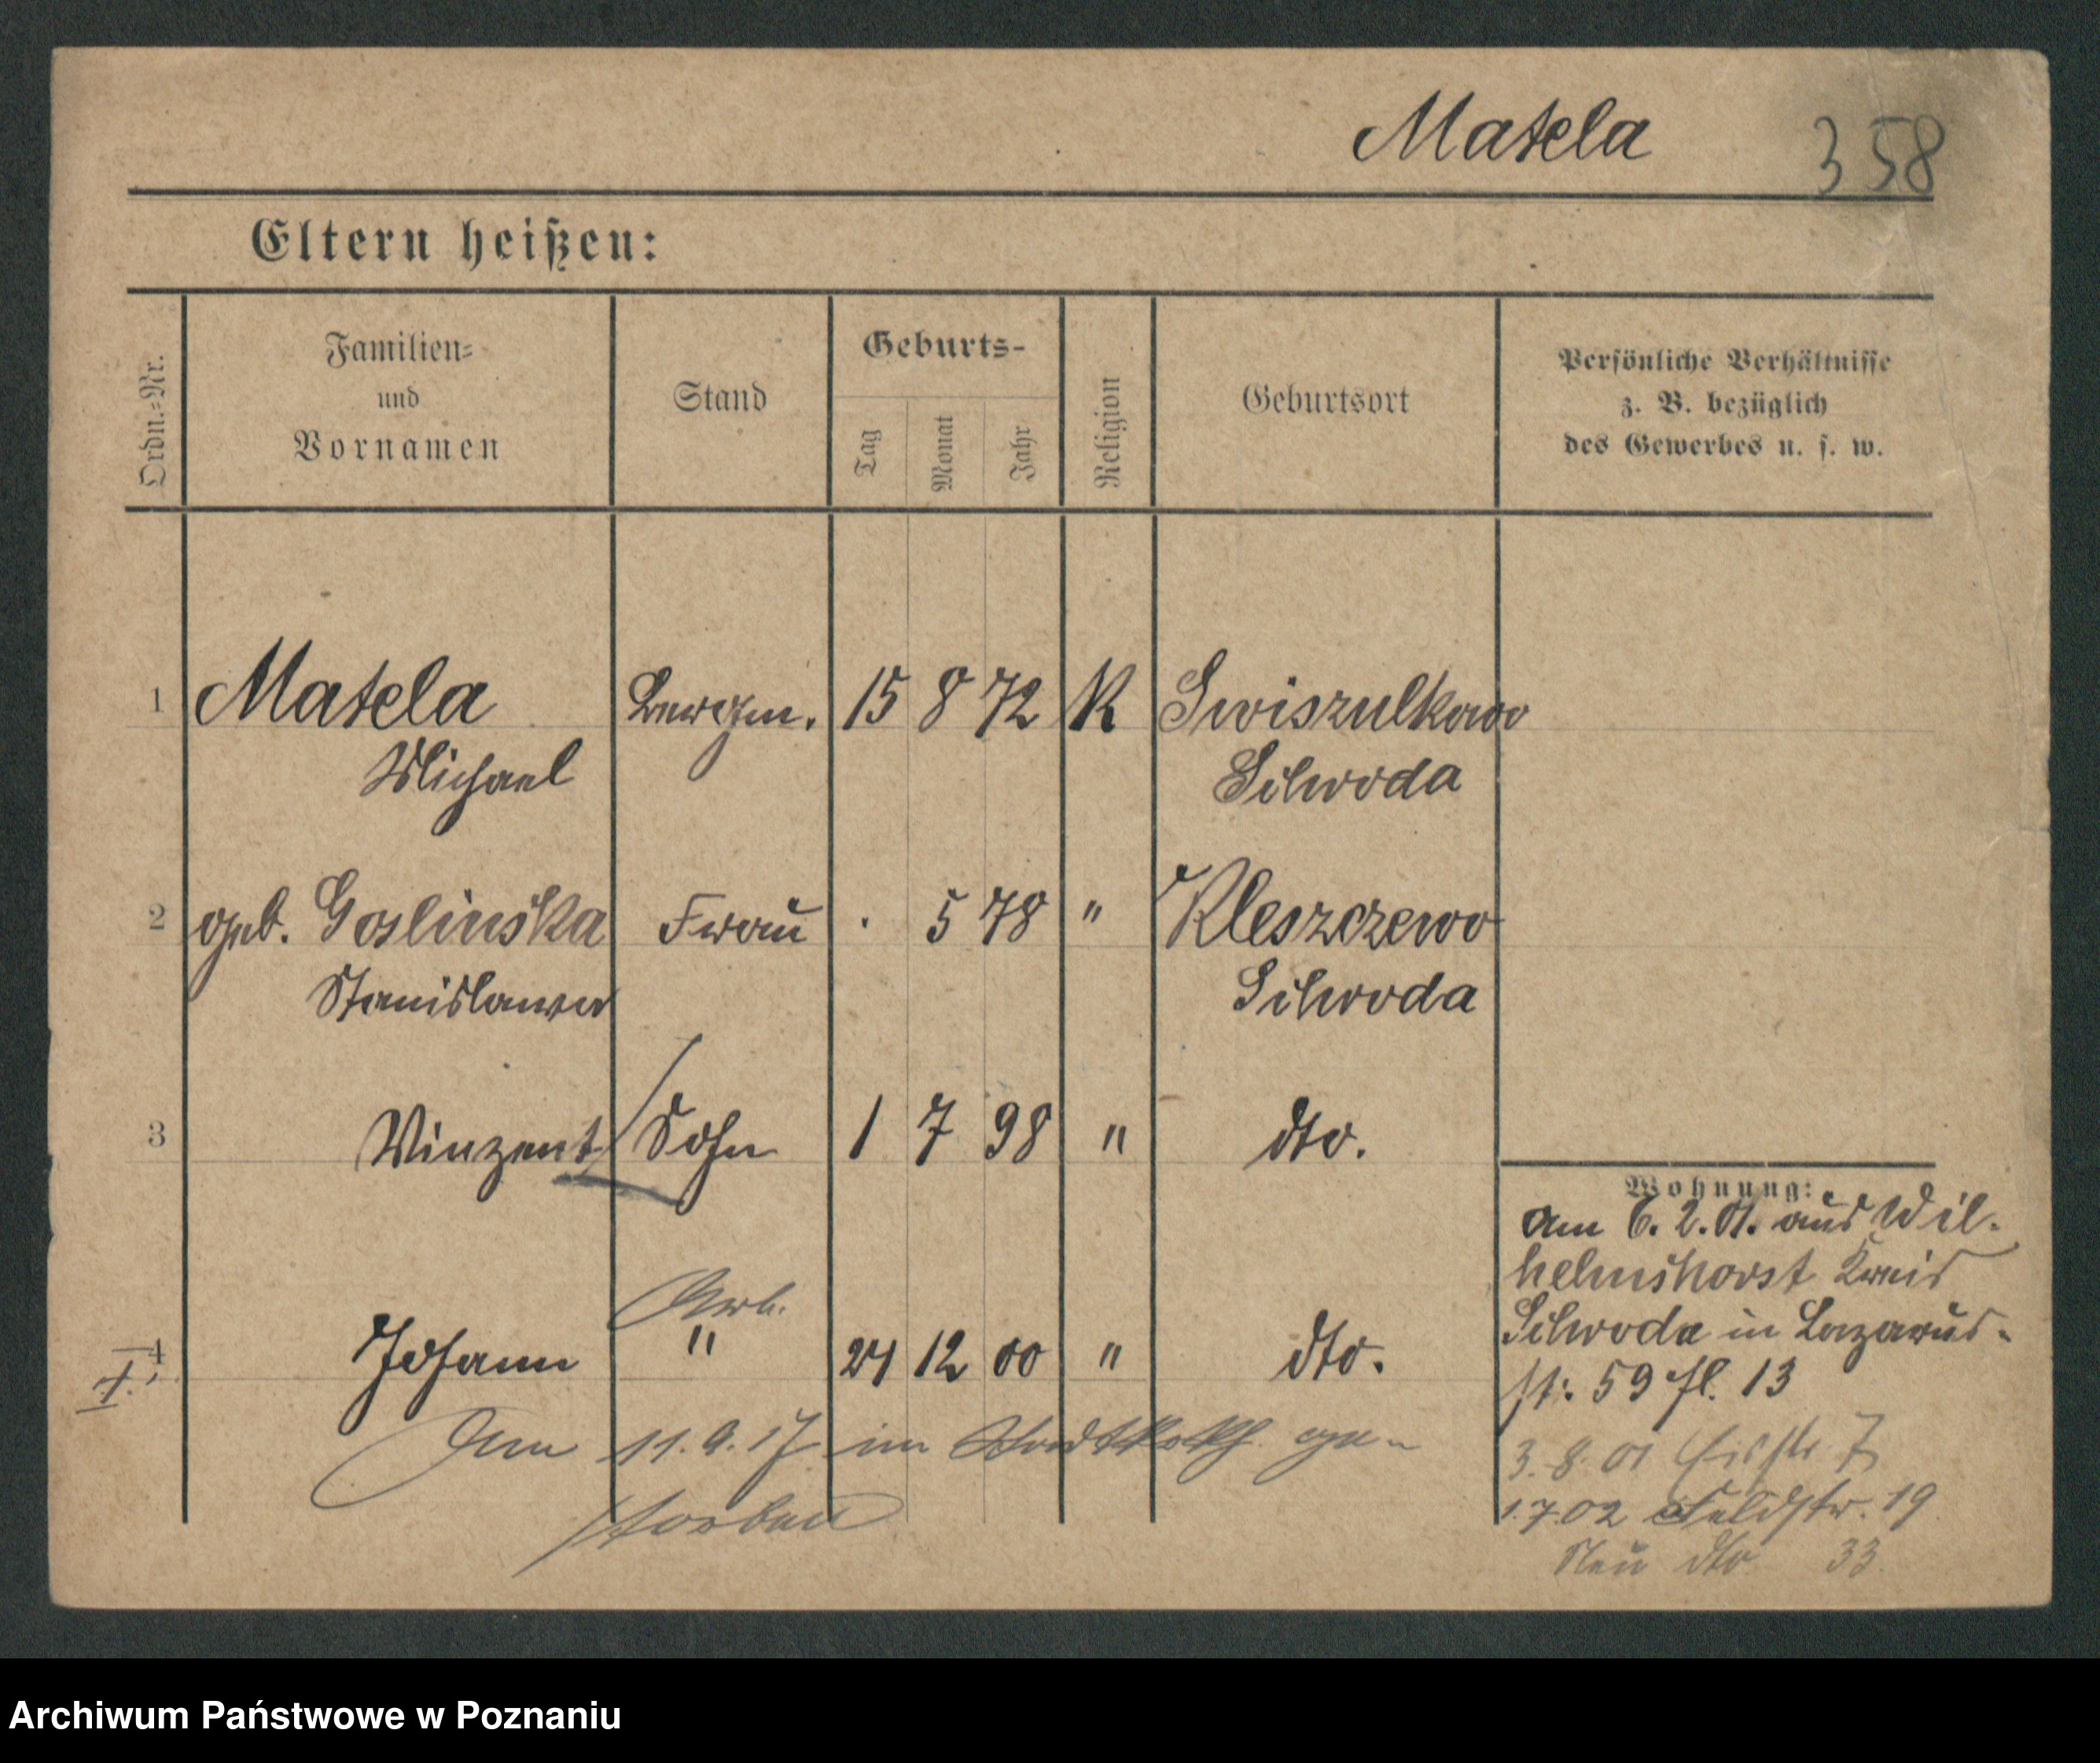 Matela 358
Eltern heißen:
Ordn.-Nr.
Familien- und Vornamen
Stand
Geburts-
Tag
Monat
Jahr
Religion
Geburtsort
Persönliche Verhältnisse
z. B. bezüglich
des Gewerbes u. s. w.
1 Matela Bergm. 15 8 72 K Swiszulkowo
Michael Schroda
2 geb. Goslinska Frau . 5 78 " Kleszczewo
Stanislawa Schroda
3 Vinzent Sohn 1 7 98 " dto.
Arb.
4 Johann " 24 12 00 " dto.
†
Am 11.9.17 im ge-
storben
Wohnung:
am 6. 2. 01. aus Wil-
helmshorst Kreis
Schroda in Lazarus-
st: 59 fl. 13
3. 8. 01 7
1.7.02 Feldstr. 19
Neu dto 33.
Archiwum Państwowe w Poznaniu